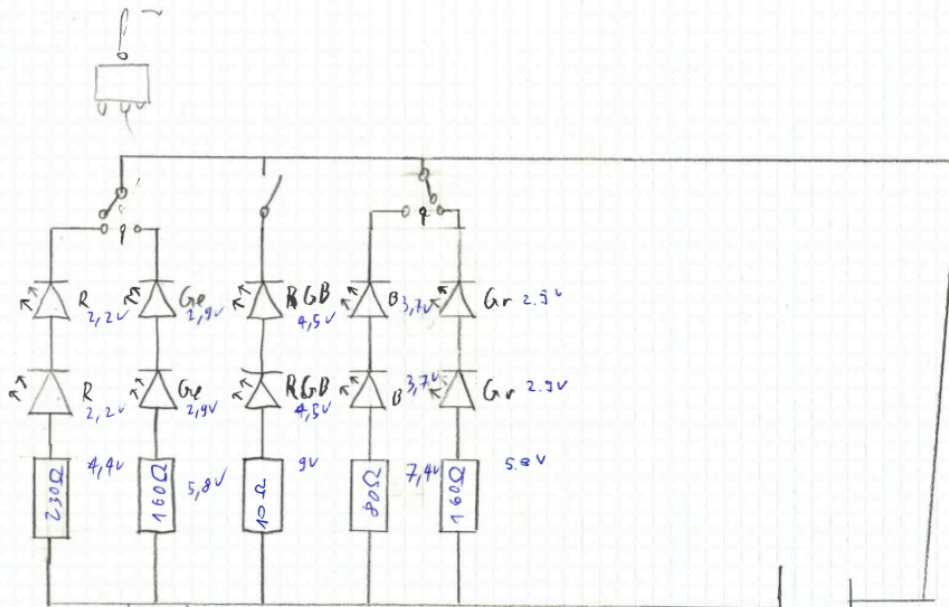 R
2,2V
Ge
2,9V
RGB
4,5V
B 3,7V
Gr 2.9V
R
2,2V
Ge
2,9V
RGB
4,5V
B 3,7V
Gr 2.9V
230Ω
4,4V
160Ω
5,8V
10Ω
9V
80Ω
7,4V
160Ω
5.8V